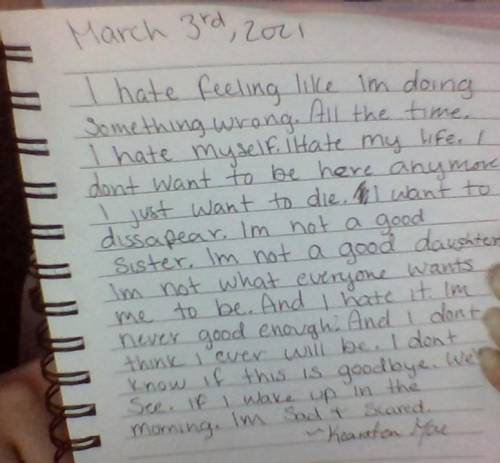 March 3rd, 2021
I hate feeling like im doing
something wrong. All the time.
I hate myself. I Hate my life. I
dont want to be here anymore
I just want to die. I want to
dissapear. Im not a good
sister. Im not a good daughter
Im not what everyone wants
me to be. And I hate it. Im
never good enough. And I dont
think I ever will be. I dont
know if this is goodbye. We'll
see. If I wake up in the
morning. Im Sad + Scared.